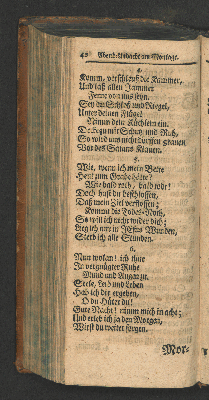 42 Abend-Andacht am Montage.
4.
Komm, verschleuß die Kammer,
Und laß allen Jammer
Ferne von uns seyn.
Sey du Schloß und Riegel,
Unter deinen Flügel
Nimm dein Küchlein ein.
Decke uns mit Schutz und Ruh,
So wird uns nicht dürffen grauen
Vor des Satans Klauen.
5.
Wie, wenn ich mein Bette
Heut zum Grabe hätte?
Wie bald roth, bald todt!
Doch hast du beschlossen,
Daß mein Ziel verflossen;
Kommt die Todes-Noth,
So will ich nicht wider dich;
Lieg ich nur in JEsus Wunden,
Sterb ich alle Stunden.
6.
Nun wolan! ich thue
In vergnügter Ruhe
Mund und Augen zu.
Seele, Leib und Leben
Hab ich dir ergeben,
O du Hüter du!
Gute Nacht! nimm mich in acht;
Und erleb ich ja den Morgen,
Wirst du weiter sorgen.
Mor-